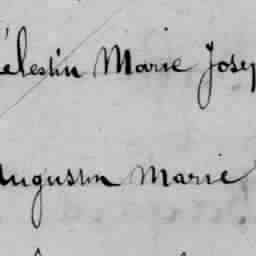 élestin Marie Josep
Augustin Marie